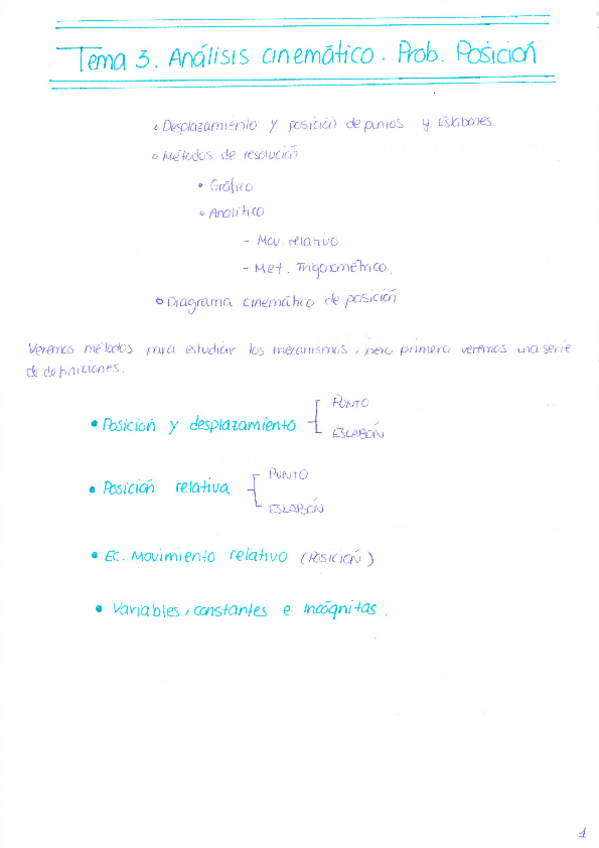 Tema 3. Análisis cinemático. Prob. Posición
• Desplazamiento y posición de puntos y Eslabones
• Métodos de resolución
• Gráfico
• Analítico
- Mov. relativo
- Met. Trigonométrico.
• Diagrama cinemático de posición
Veremos métodos para estudiar los mecanismos, pero primero veremos una serie
de definiciones.
• Posición y desplazamiento
PUNTO
ESLABÓN
• Posición relativa
PUNTO
ESLABÓN
• Ec. Movimiento relativo (POSICIÓN)
• Variables, constantes e incógnitas.
1